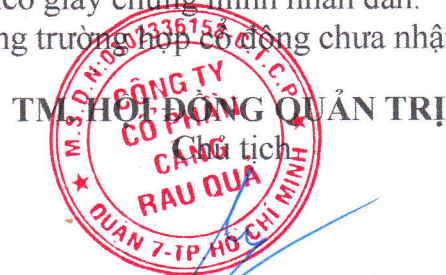 giấy chứng minh nhân dân.
trường hợp cổ đông chưa
TM. HỘI ĐỒNG QUẢN TRỊ
Chủ tịch
CÔNG TY
CỔ PHẦN
CẢNG
RAU QUẢ
QUẬN 7-TP.HỒ CHÍ MINH